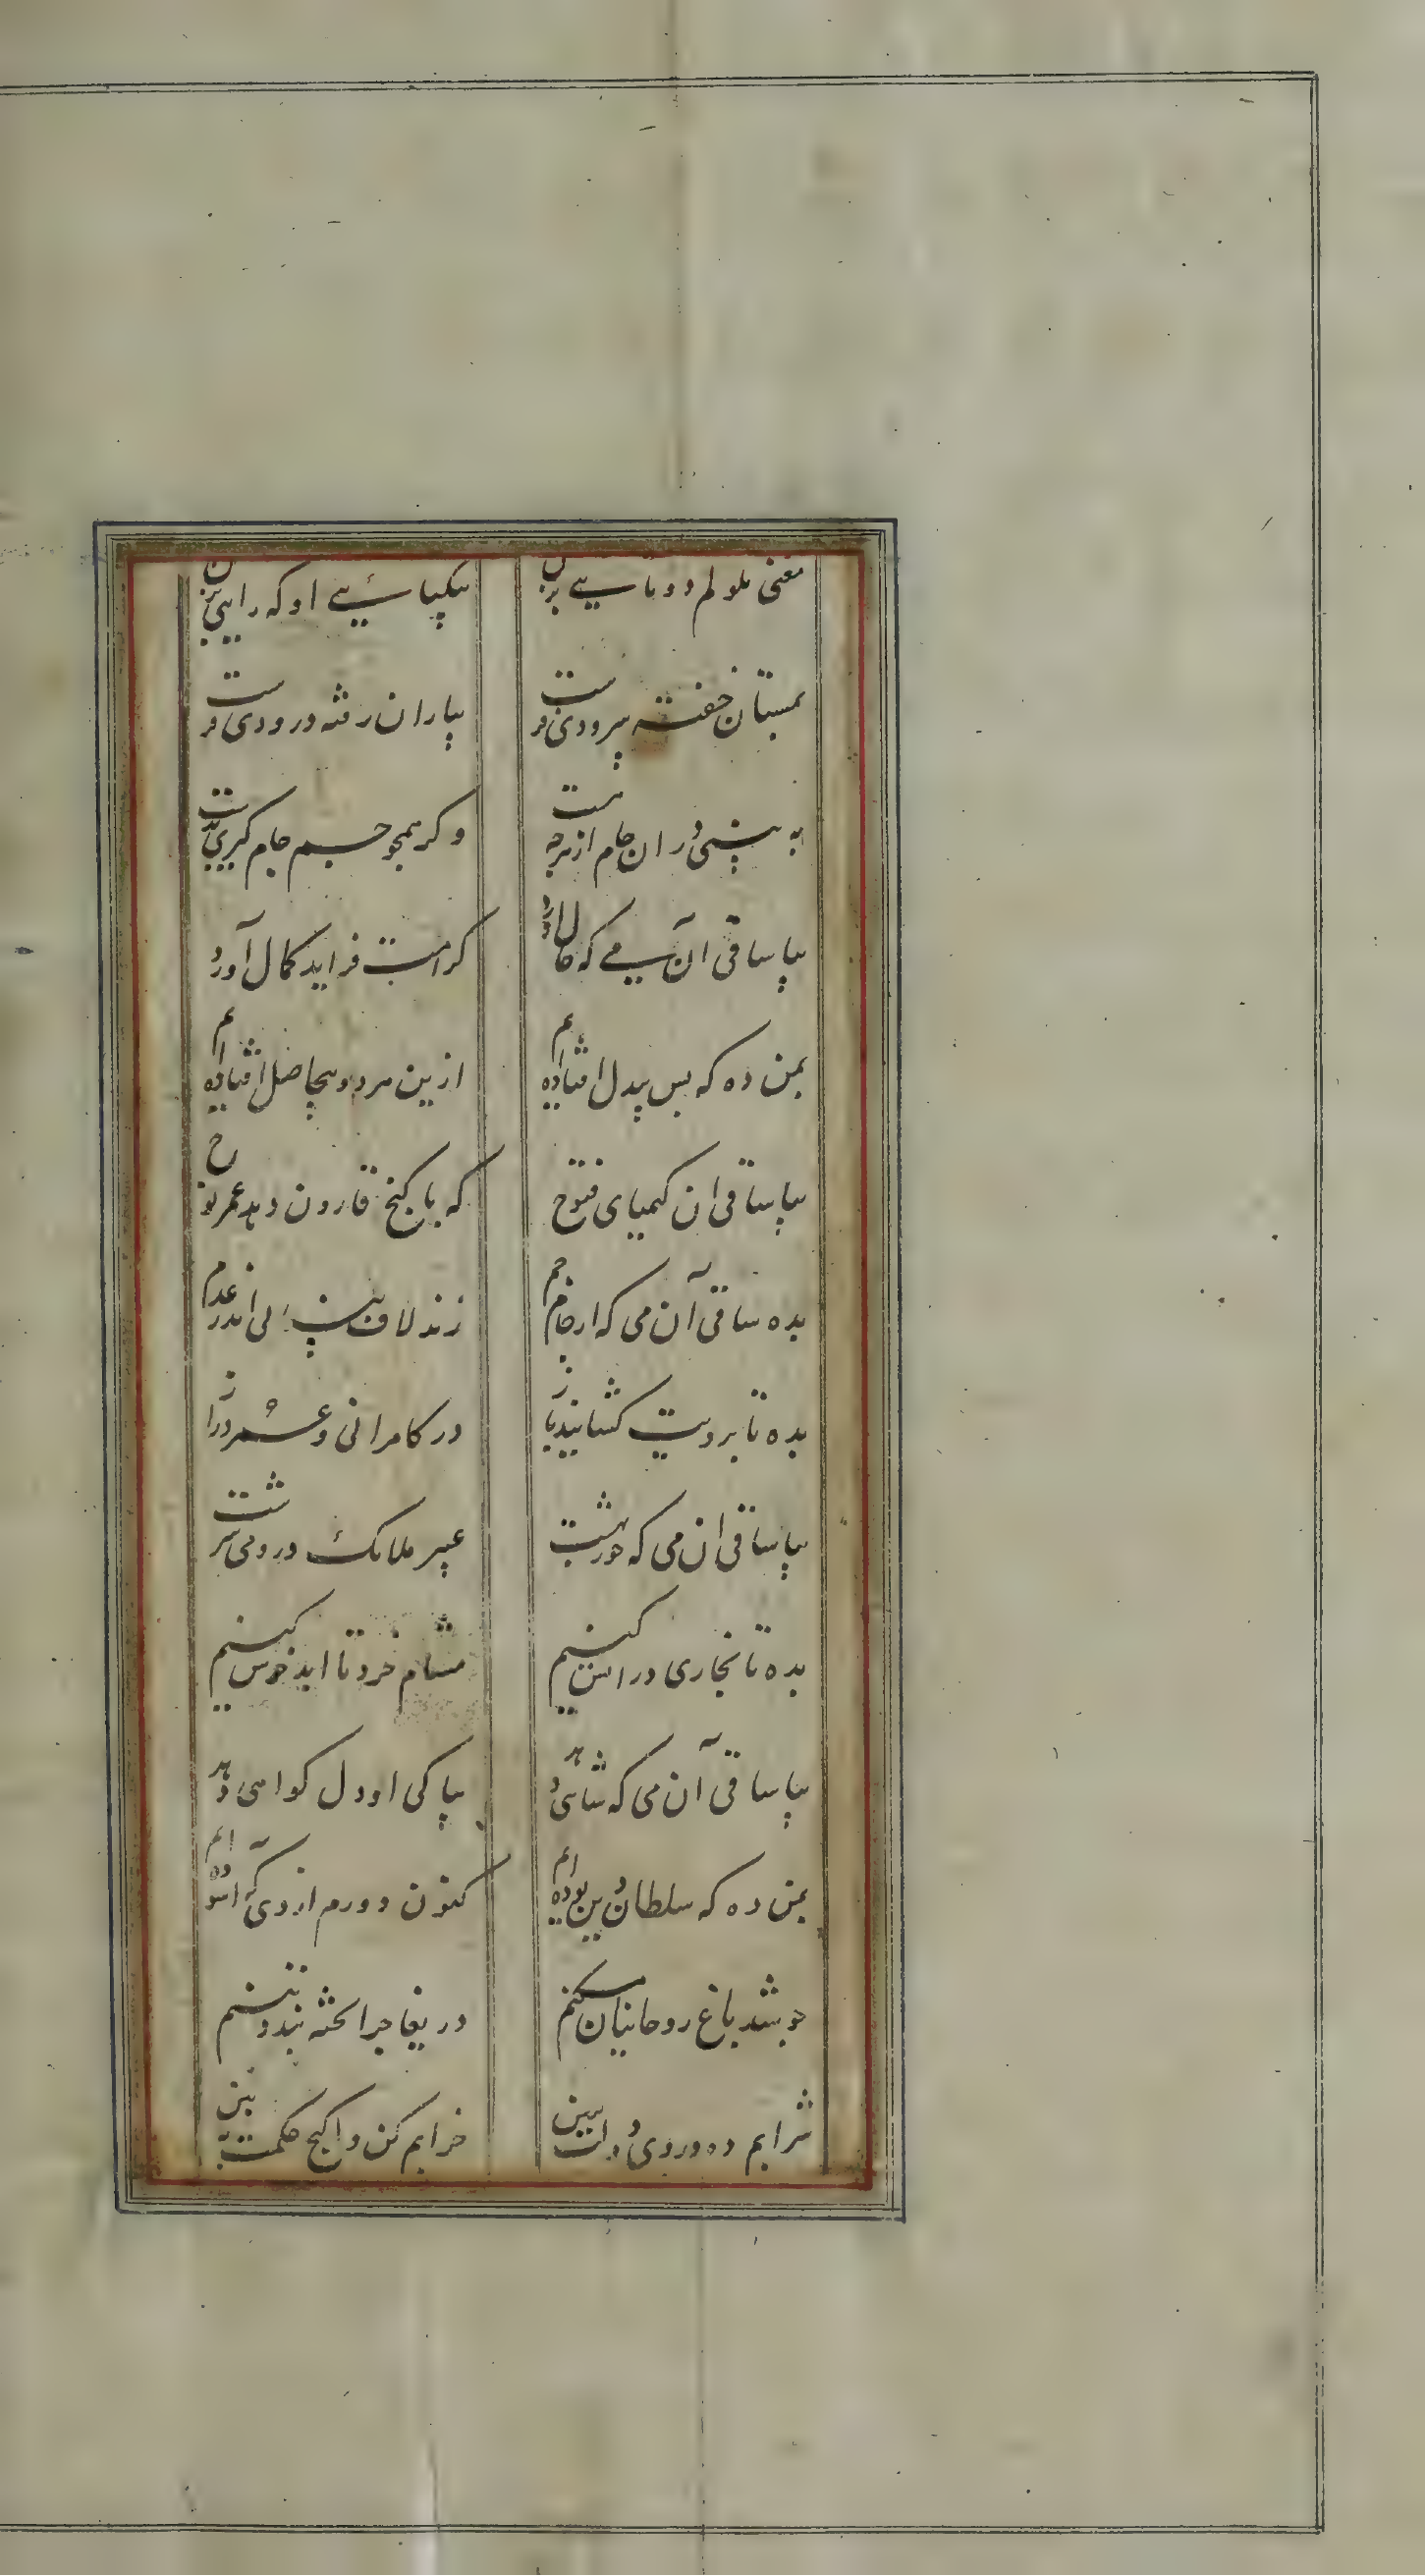 مغنی ملولم دوتاییی بزن
بیکتایی او که رایی بزن
بمستان خفته سرودی فرست
بیاران رفته درودی فرست
به بینی در ان جام از هرچه هست
وکر همچو جم جام کیری بدست
بیا ساقی ان می که حال آورد
کرامت فزاید کمال آورد
بمن ده که بس بیدل افتاده ام
ازین هر دو بیحاصل افتاده ام
بیا ساقی ان کیمیای فتوح
که با کنج قارون دهد عمر نوح
بده ساقی آن می که از جام جم
زند لاف بینایی اندر عدم
بده تا برویت کشایند باز
در کامرانی و عمر دراز
بیا ساقی ان می که حور بهشت
عبیر ملایک در و می سرشت
بده تا بخاری در اتش کنیم
مشام خرد تا ابد خوش کنیم
بیا ساقی آن می که شاهی دهد
بپاکی او دل کواهی دهد
بمن ده که سلطان دین بوده ام
کنون دورم از وی که آسوده ام
چو شد باغ روحانیان مسکنم
دریغا چرا تخته بند تنم
شرابم ده و روی دولت ببین
خرابم کن و کنج حکمت ببین